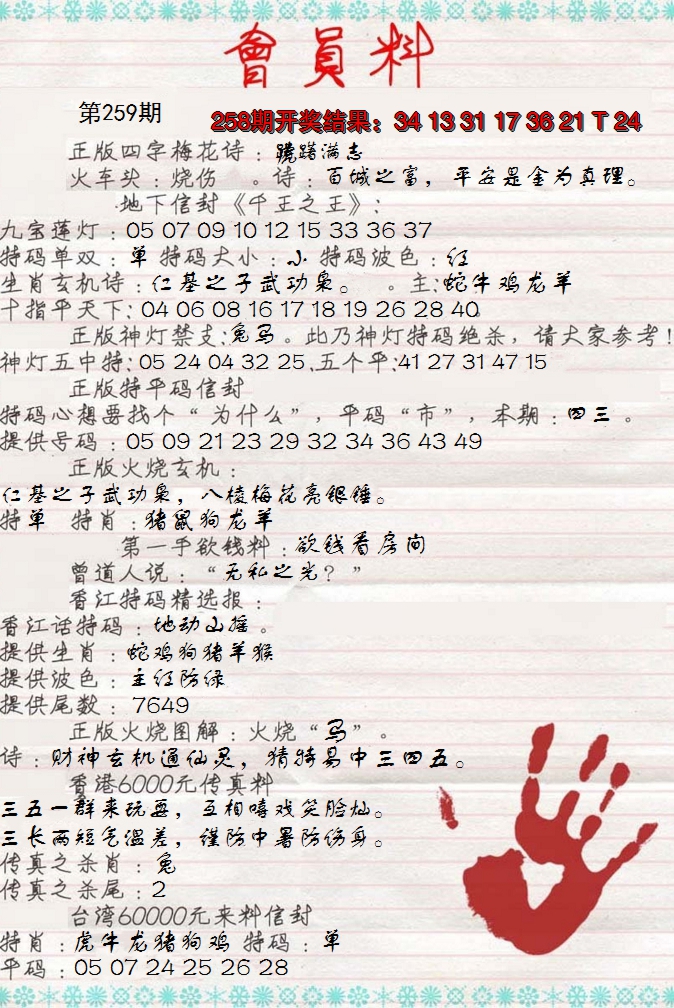 會員料
第259期
258期开奖结果：34 13 31 17 36 21 T 24
正版四字梅花诗：踌躇满志
火车头：烧伤 。诗：百城之富，平安是金为真理。
地下信封《千王之王》：
九宝莲灯：05 07 09 10 12 15 33 36 37
特码单双：单 特码大小：小 特码波色：红
生肖玄机诗：仁基之子武功枭。 。主：蛇牛鸡龙羊
十指平天下：04 06 08 16 17 18 19 26 28 40
正版神灯禁支：兔马。此乃神灯特码绝杀，请大家参考！
神灯五中特：05 24 04 32 25.五个平：41 27 31 47 15
正版特平码信封
特码心想要找个“为什么”，平码“市”，本期：四三 。
提供号码：05 09 21 23 29 32 34 36 43 49
正版火烧玄机：
仁基之子武功枭，八棱梅花亮银锤。
特单 特肖：猪鼠狗龙羊
第一手欲钱料：欲钱看房间
曾道人说：“无私之光？”
香江特码精选报：
香江话特码：地动山摇。
提供生肖：蛇鸡狗猪羊猴
提供波色：主红防绿
提供尾数：7649
正版火烧图解：火烧“马”。
诗：财神玄机通仙灵，猜特易中三四五。
香港6000元传真料
三五一群来玩耍，互相嘻戏笑脸灿。
三长两短气温差，谨防中暑防伤身。
传真之杀肖：兔
传真之杀尾：2
台湾60000元来料信封
特肖：虎牛龙猪狗鸡 特码：单
平码：05 07 24 25 26 28